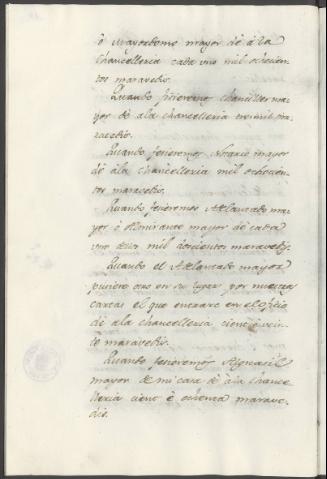 ò Mayordomo mayor dè à la
chancelleria cada uno mil ochocien-
tos maravedis.
Quando ficieremos Chanciller ma-
yor dè a la chancelleria tres mil ma-
ravedis.
Quando ficieremos Notario mayor
dè àla chancelleria mil ochocien-
tos maravedis.
Quando ficieremos Adelantado ma-
yor ò Almirante mayor dè cada
uno dellos mil docientos maravedis.
Quando el Adelantado mayor
pusiere otro en su lugar por nuestra
carta el que entrare en el oficio
dè ala chancelleria cient è vein-
te maravedis.
Quando ficieremos Alguacil
mayor de mi casa dè àla chance-
lleria cient è ochenta marave-
dis.